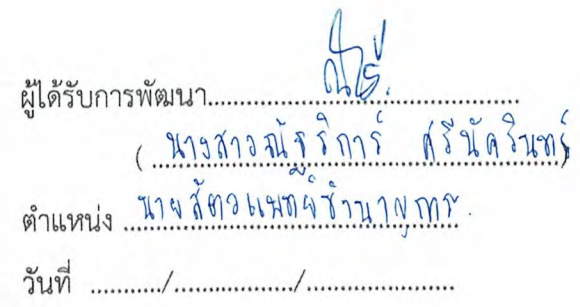 ผู้ได้รับการพัฒนา........................................
( นางสาวณัฐริการ์ ศรีนัครินทร์ )
ตำแหน่ง นายสัตวแพทย์ชำนาญการ
วันที่ ........../................./.....................